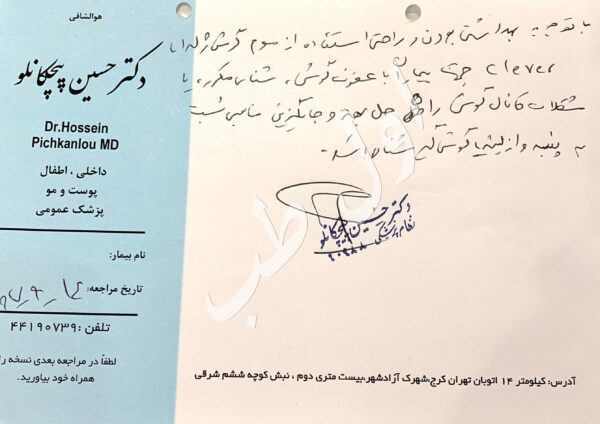 هوالشافی
دکتر حسین پیچکانلو
Dr.Hossein
Pichkanlou MD
داخلی ، اطفال
پوست و مو
پزشک عمومی
نام بیمار:
تاریخ مراجعه: ۹۷/۹/۱۴
تلفن : ۴۴۱۹۰۷۳۹
لطفاً در مراجعه بعدی نسخه را
همراه خود بیاورید.
با توجه به بهداشتی بودن و راحتی استفاده از موم گوش ژله‌ای
Clever جهت بیماران با عفونت گوش ، شنای مکرر ، یا
مشکلات کانال گوش راه حل بوده و جایگزین مناسبی نسبت
به پنبه و وازلین یا گوش‌گیر شنا می‌باشد -
دکتر حسین پیچکانلو
نظام پزشکی
اول طب
آدرس: کیلومتر ۱۴ اتوبان تهران کرج،شهرک آزادشهر،بیست متری دوم ، نبش کوچه ششم شرقی